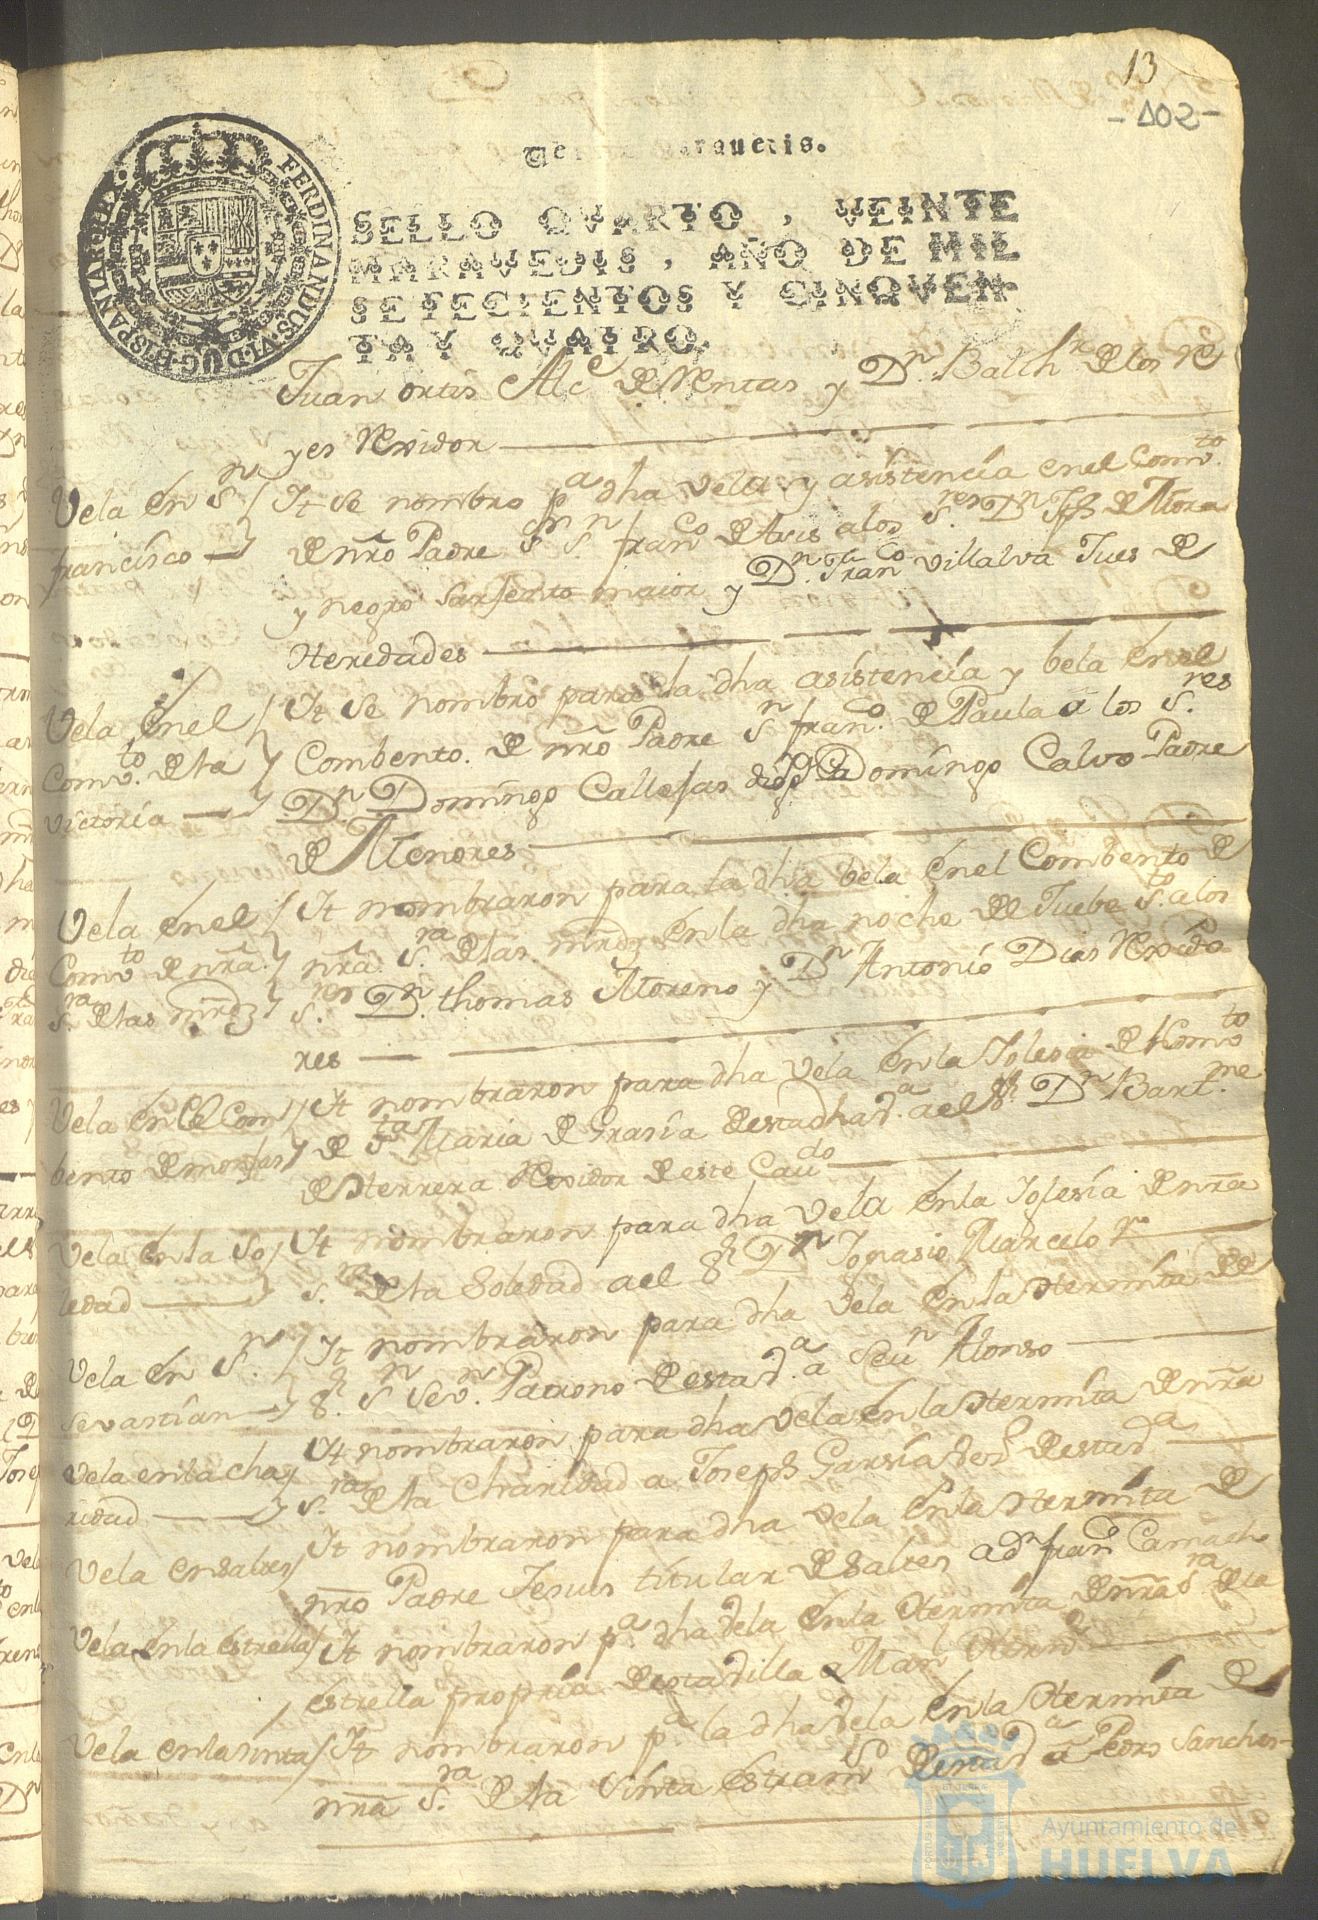 13
-102-
FERDINANDUS·VI·D·G·HISPANIAR·REX·
SELLO QVARTO, VEINTE
MARAVEDIS, AÑO DE MIL
SETECIENTOS Y CINQVEN-
TA Y QVATRO.
Juan ortis Alc.e de Ventas y D.n Balth.r de los Re
yes Rexidor
Vela en S.n francisco
Yt se nombro p.a dha vela y asistencia en el Comv.to
de nro Padre S.n S. fran.co de Asis a los S.res D.n Jph de Mora
y negro Sarjento maior y D.n Fran.co Villalva Jues de
Heredades
Vela en el Comv.to de la victoria
Yt se nombro para la dha asistencia y bela en el
Combento de nro Padre S.n fran.co de Paula a los S.res
D.n Domingo Callejas y Domingo Calvo Padre
de Menores
Vela en el Comv.to de nra S.ra de las mrds
Yt nombraron para la dha bela en el Combento de
nra S.ra de las mrds en la dha noche de Juebe S.to a los
S.res D.n thomas Moreno y D.n Antonio Dias Rexido
res
Vela en el Combento de monjas
Yt nombraron para dha vela en la Iglesia de Comv.to
de S.ta Maria de Grasia desta dha V.a a el S.r D.n Bart.me
de Herrera Rexidor de este Cav.do
Vela en la Soledad
Yt nombraron para dha vela en la Iglesia de nra
S.ra de la Soledad a el S.r D.n Ignasio Marcelo
Vela en S.n Sevastian
Yt nombraron para dha vela en la Hermita de
S.r S.n Sev.n Patrono desta V.a a Seu.n Alonso
Vela en la charidad
Yt nombraron para dha vela en la Hermita de nra
S.ra de la Charidad a Joseph Garsia desta V.a
Vela en saltes
Yt nombraron para dha vela en la Hermita de
nro Padre Jesus titular de saltes a d.n fran.co Camacho
Vela en la estrella
Yt nombraron p.a dha vela en la Hermita de nra S.ra de la
estrella propria desta villa a Man.l
Vela en la sinta
Yt nombraron p.a la dha vela en la Hermita de
nra S.ra de la Sinta estram.s desta V.a a Pedro Sanches
PORTUS MARIS
ET TERRAE
CUSTODIA
Ayuntamiento de
HUELVA